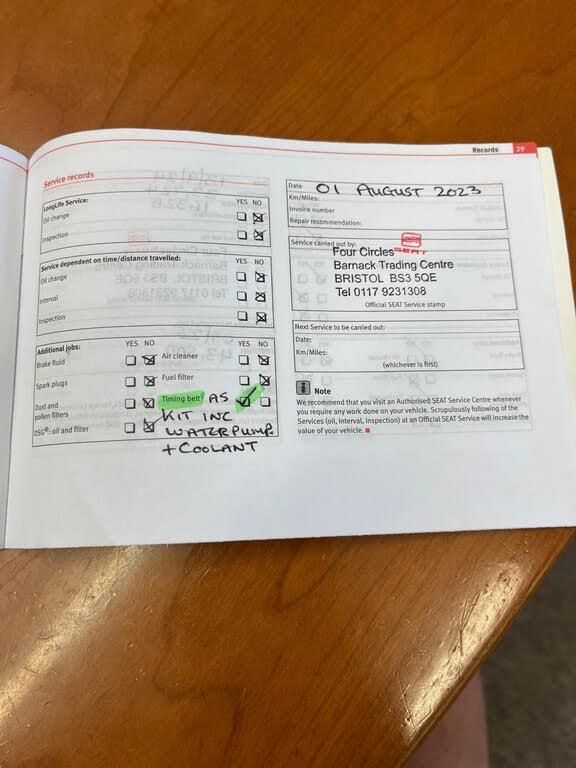 Records 29
Service records
LongLife Service: YES NO
Oil change
Inspection
Service dependent on time/distance travelled:
YES NO
Oil change
Interval
Inspection
Additional jobs: YES NO YES NO
Brake fluid Air cleaner
Spark plugs Fuel filter
Dust and pollen filters Timing belt AS
KIT INC
DSG®: oil and filter WATERPUMP.
+ COOLANT
Date 01 AUGUST 2023
Km/Miles:
Invoice number
Repair recommendation:
Service carried out by:
SEAT
Four Circles
Barnack Trading Centre
BRISTOL BS3 5QE
Tel 0117 9231308
Official SEAT Service stamp
Next Service to be carried out:
Date:
Km/Miles:
(whichever is first)
Note
We recommend that you visit an Authorised SEAT Service Centre whenever
you require any work done on your vehicle. Scrupulously following of the
Services (oil, interval, inspection) at an Official SEAT Service will increase the
value of your vehicle.